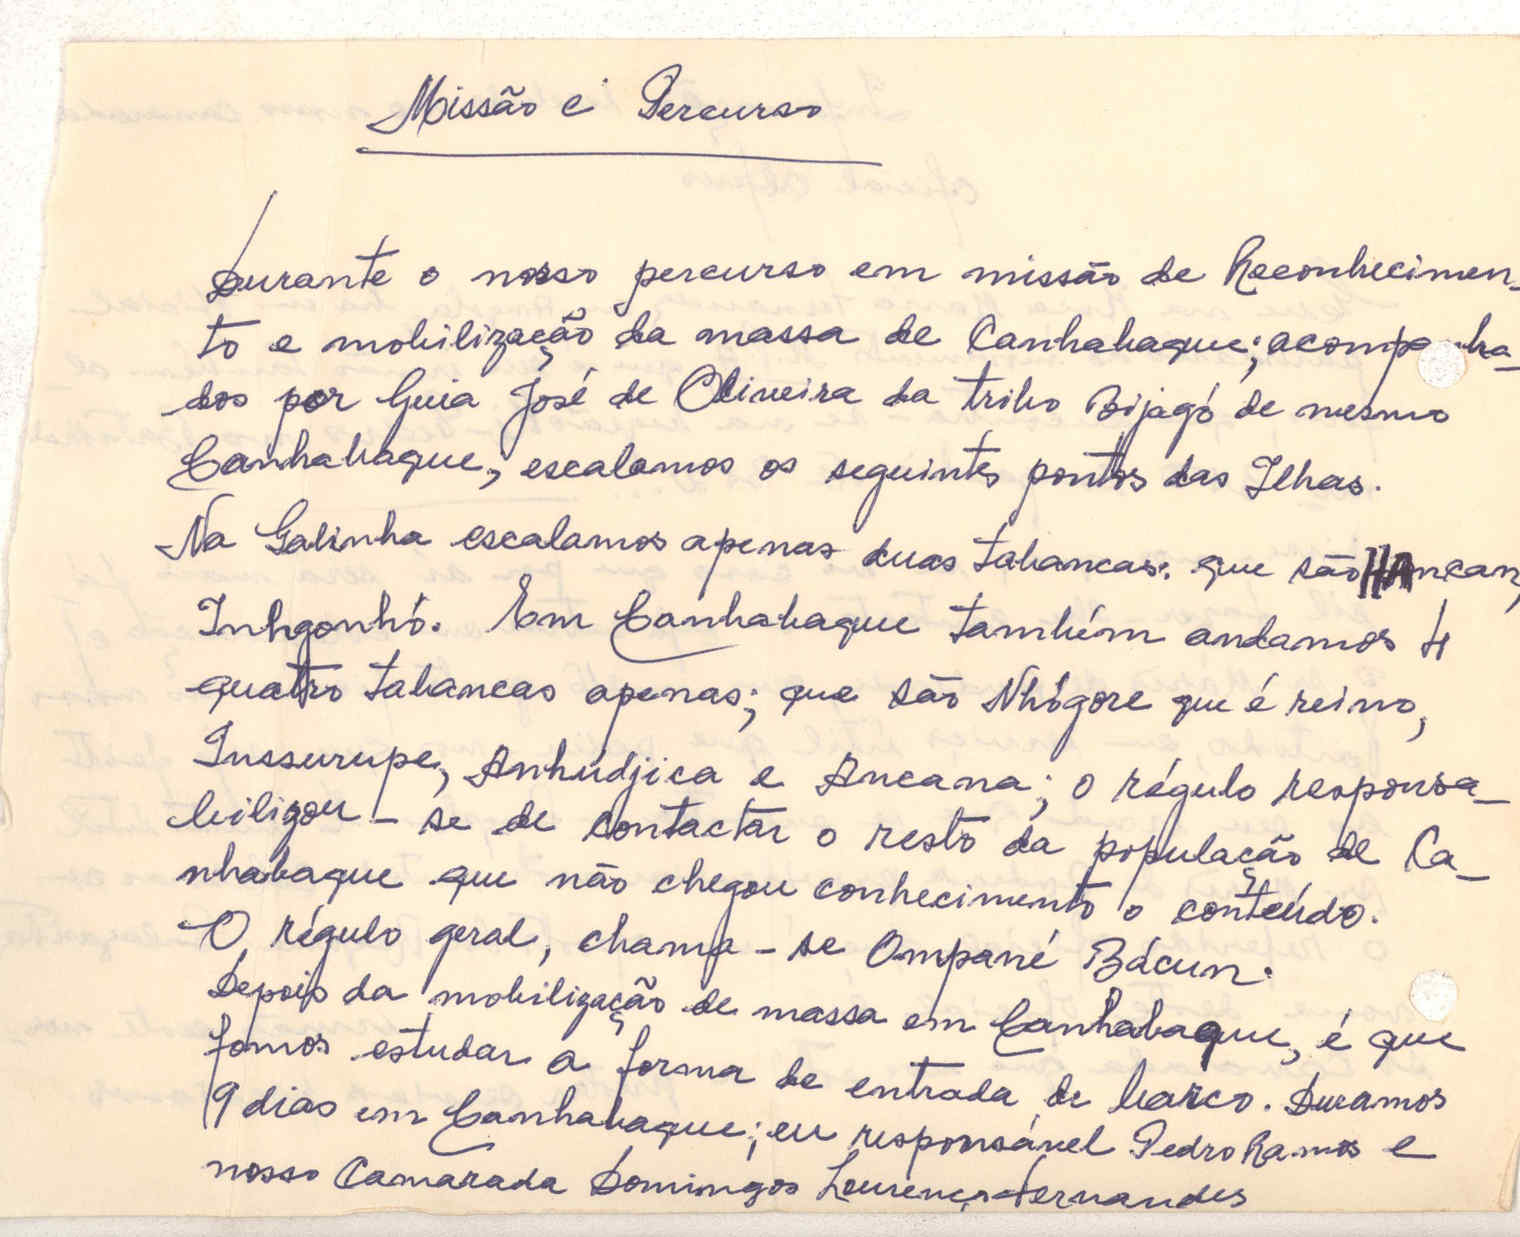 Missão e Percurso
Durante o nosso percurso em missão de Reconhecimen-
to e mobilização da massa de Canhabaque; acompanha-
dos por Guia José de Oliveira da tribo Bijagó de mesmo
Canhabaque, escalamos os seguintes pontos das Ilhas.
Na Galinha escalamos apenas duas tabancas: que são Ancan,
Inhgonhó. Em Canhabaque também andamos 4
quatro tabancas apenas; que são Nhógore que é reino,
Inssurupe, Anhudjica e Ancana; o régulo responsa-
bilizou-se de contactar o resto da população de Ca-
nhabaque que não chegou conhecimento o conteúdo.
O régulo geral, chama-se Ompané Bácun.
Depois da mobilização de massa em Canhabaque, é que
fomos estudar a forma de entrada de barco. Duramos
9 dias em Canhabaque; eu responsável Pedro Ramos e
nosso Camarada Domingos Lourenço Fernandes